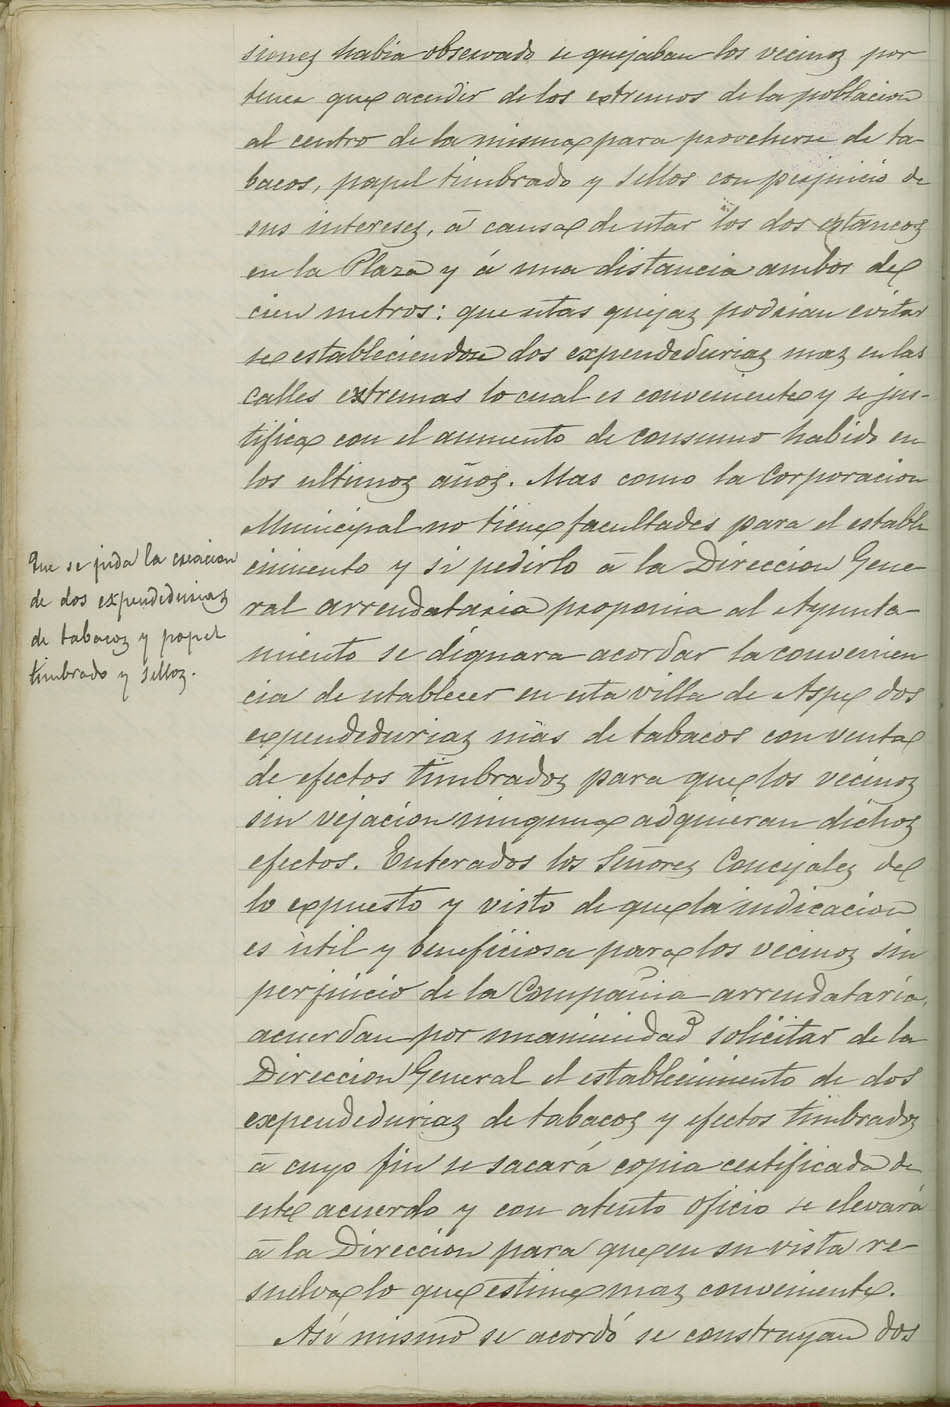 siones habia observado se quejaban los vecinos por
tener que acudir de los estremos de la poblacion
al centro de la misma para proveherse de ta-
bacos, papel timbrado y sellos con perjuicio de
sus intereses, á causa de estar los dos estancos
en la Plaza y á una distancia ambos de
cien metros: que estas quejas podrian evitar
se estableciendose dos expendedurias mas en las
calles extremas lo cual es conveniente y se jus-
tifica con el aumento de consumo habido en
los ultimos años. Mas como la Corporacion
Municipal no tiene facultades para el estable
cimiento y si pedirlo á la Direccion Gene-
ral arrendataria proponia al Ayunta-
miento se dignara acordar la convenien
cia de establecer en esta villa de Aspe dos
expendedurias más de tabacos con venta
de efectos timbrados para que los vecinos
sin vejacion ninguna adquieran dichos
efectos. Enterados los Señores Concejales de
lo expuesto y visto de que la indicacion
es útil y beneficiosa para los vecinos sin
perjuicio de la Compañia arrendataria,
acuerdan por unanimidad solicitar de la
Direccion General el establecimiento de dos
expendedurias de tabacos y efectos timbrados
á cuyo fin se sacará copia certificada de
este acuerdo y con atento oficio se elevará
á la Direccion para que en su vista re-
suelva lo que estime mas conveniente.
Así mismo se acordó se construyan dos
Que se pida la creacion
de dos expendedurias
de tabacos y papel
timbrado y sellos.